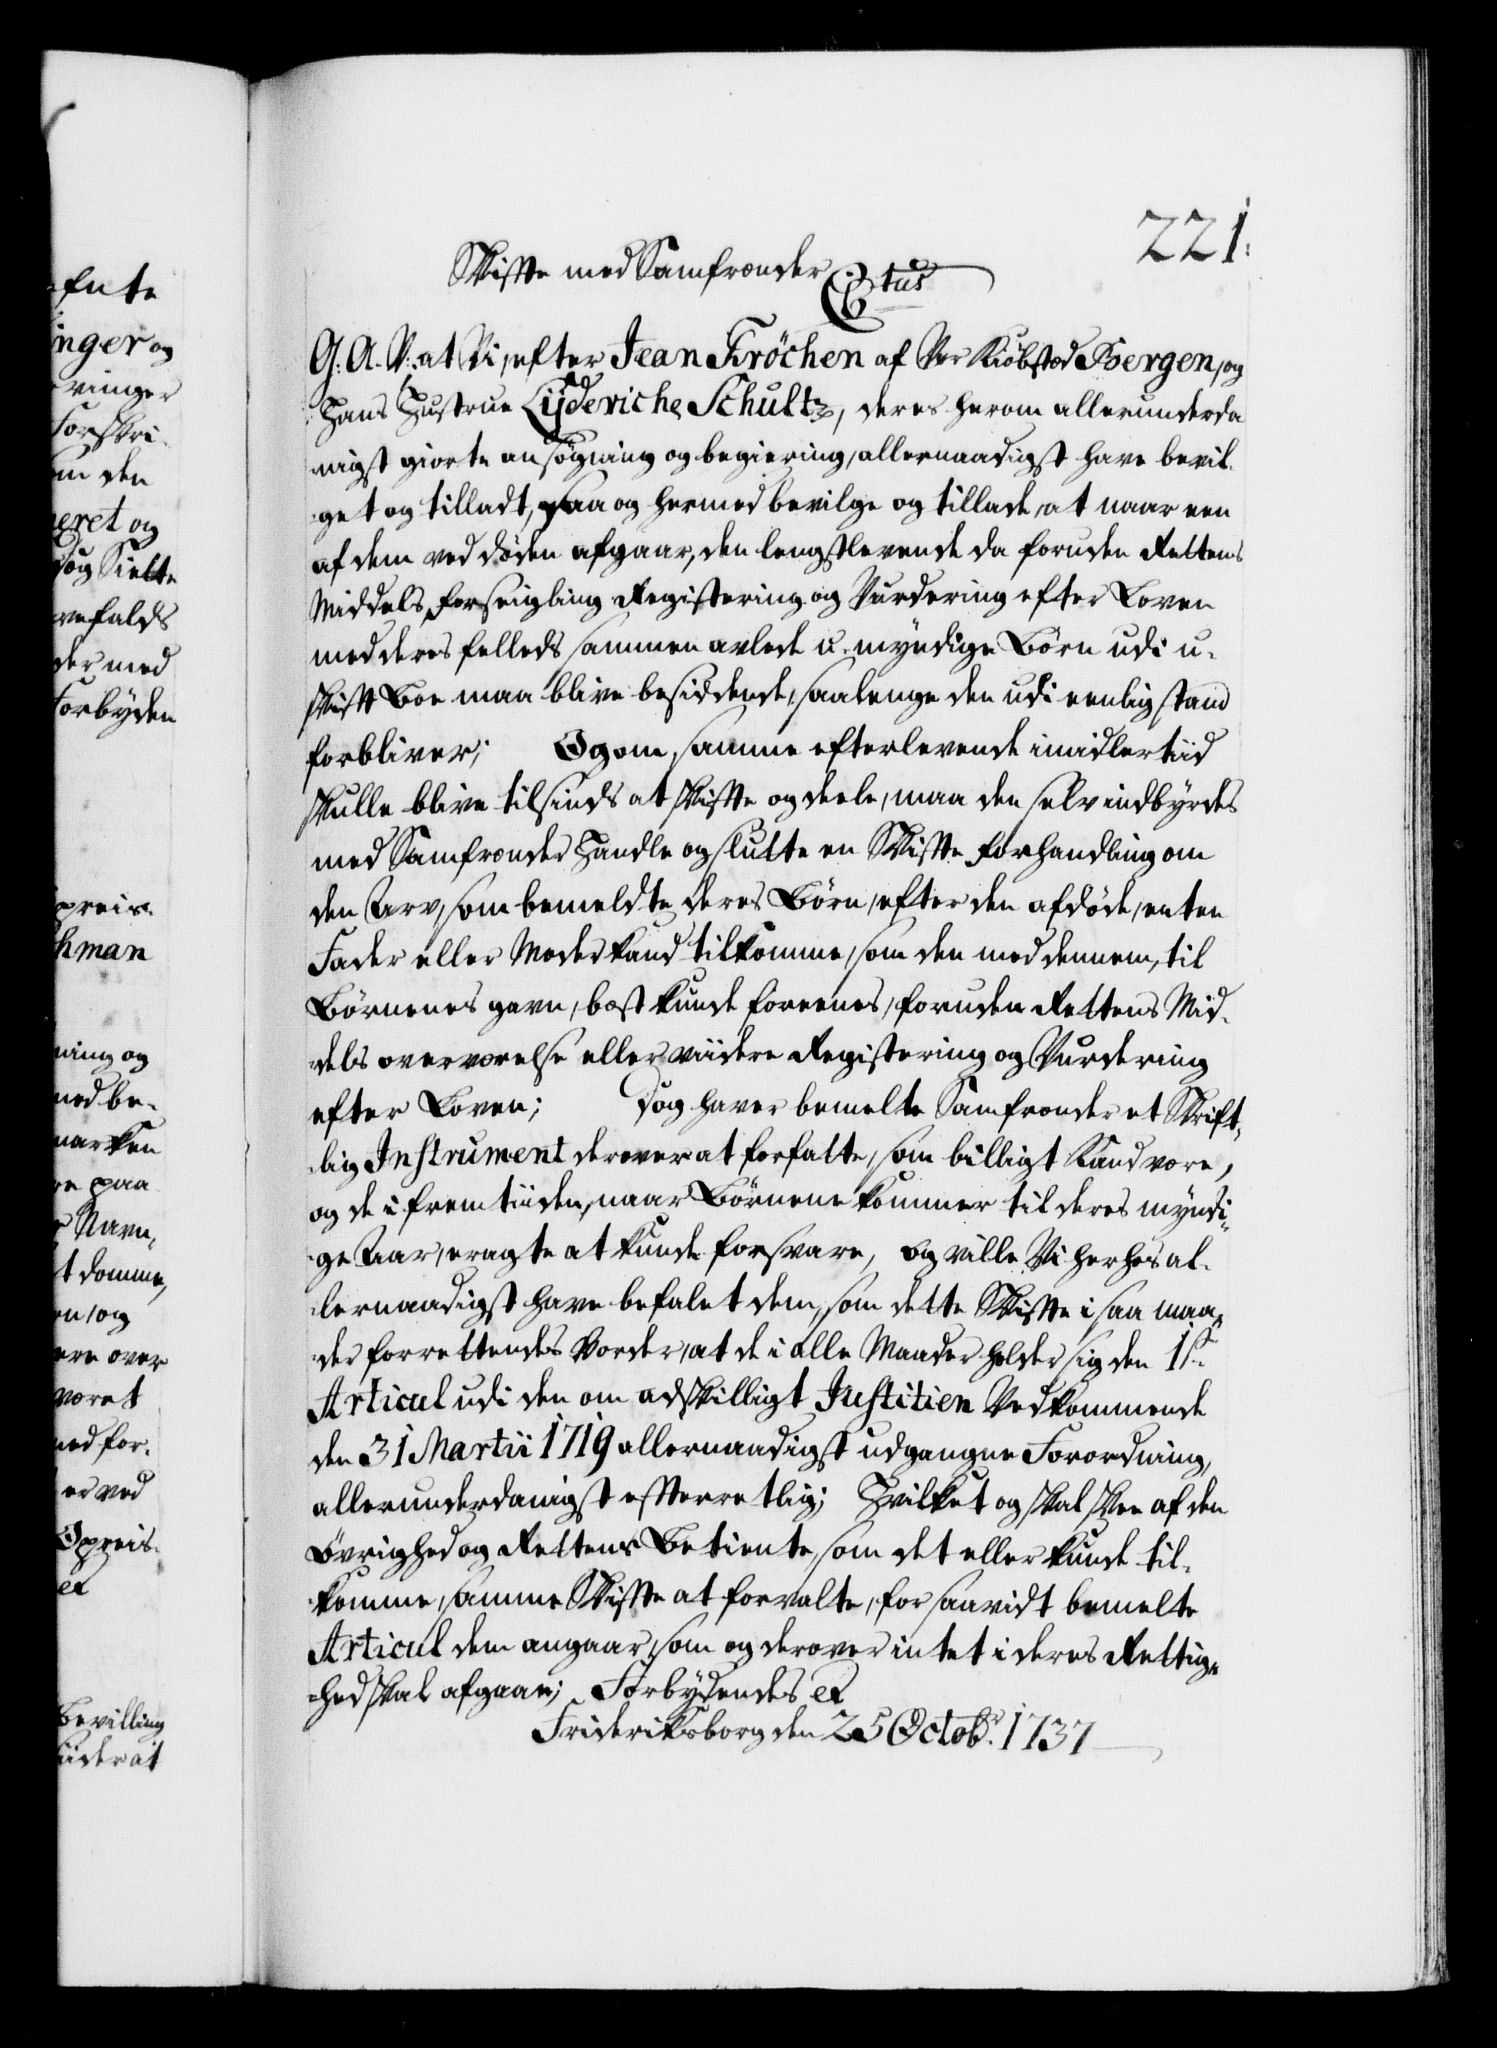 221.
Skifte med Samfrænder
C6tus
G: A. V: at Vi, efter Jean Kröchen af Vor Kiøbstæd Bergen, og
Hans Hustrue Lÿderiche Schultz, deres herom allerunderda
nigst giorte ansøgning og begiering, allernaadigst have bevil-
get og tilladt, saa og hermed bevilge og tillade, at naar een
af dem ved døden afgaar, den lengstlevende da foruden Rettens
Middels forseigling Registering og Vurdering efter Loven
med deres felleds sammen avlede u-myndige Børn udi u-
skift Boe maa blive besiddende, saalenge den udi eenlig stand
forbliver; Og om samme efterlevende imidlertiid
skulle blive tilsinds at skifte og deele, maa den self indbyrdes
med Samfrænder Handle og slutte en Skifte forhandling om
den Arv, som bemeldte deres Børn, efter den afdøde, enten
Fader eller Moder kand tilkomme, som den med dennem, til
Børnenes gavn, bæst kunde foreenes, foruden Rettens Mid-
dels overværelse eller viidere Registering og Vurdering
efter Loven; Dog haver bemelte Samfrænder et Skrift-
lig Instrument derover at forfatte, som billigt Kand være,
og de i fremtiiden, naar Børnene kommer til deres myndi-
ge Aar, eragte at kunde forsvare, og ville Vi herhos al-
lernaadigst have befalet dem, som dette Skifte i saa maa-
der forrettendes Vorder, at de i alle Maader holder sig den 1ste
Articul udi den om adskilligt Justitien Vedkommende
den 31 Martii 1719 allernaadigst udgangne Forordning,
allerunderdanigst efterretlig; Hvilket og skal skee af den
Øvrighed og Rettens Betiente, som det ellers kunde til-
komme, samme Skifte at forvalte, for saavidt bemelte
Articul dem angaar, som og derover intet i deres Rettig-
hed skal afgaae; Forbydendes et
Frideriksborg den 25 Octobr. 1737